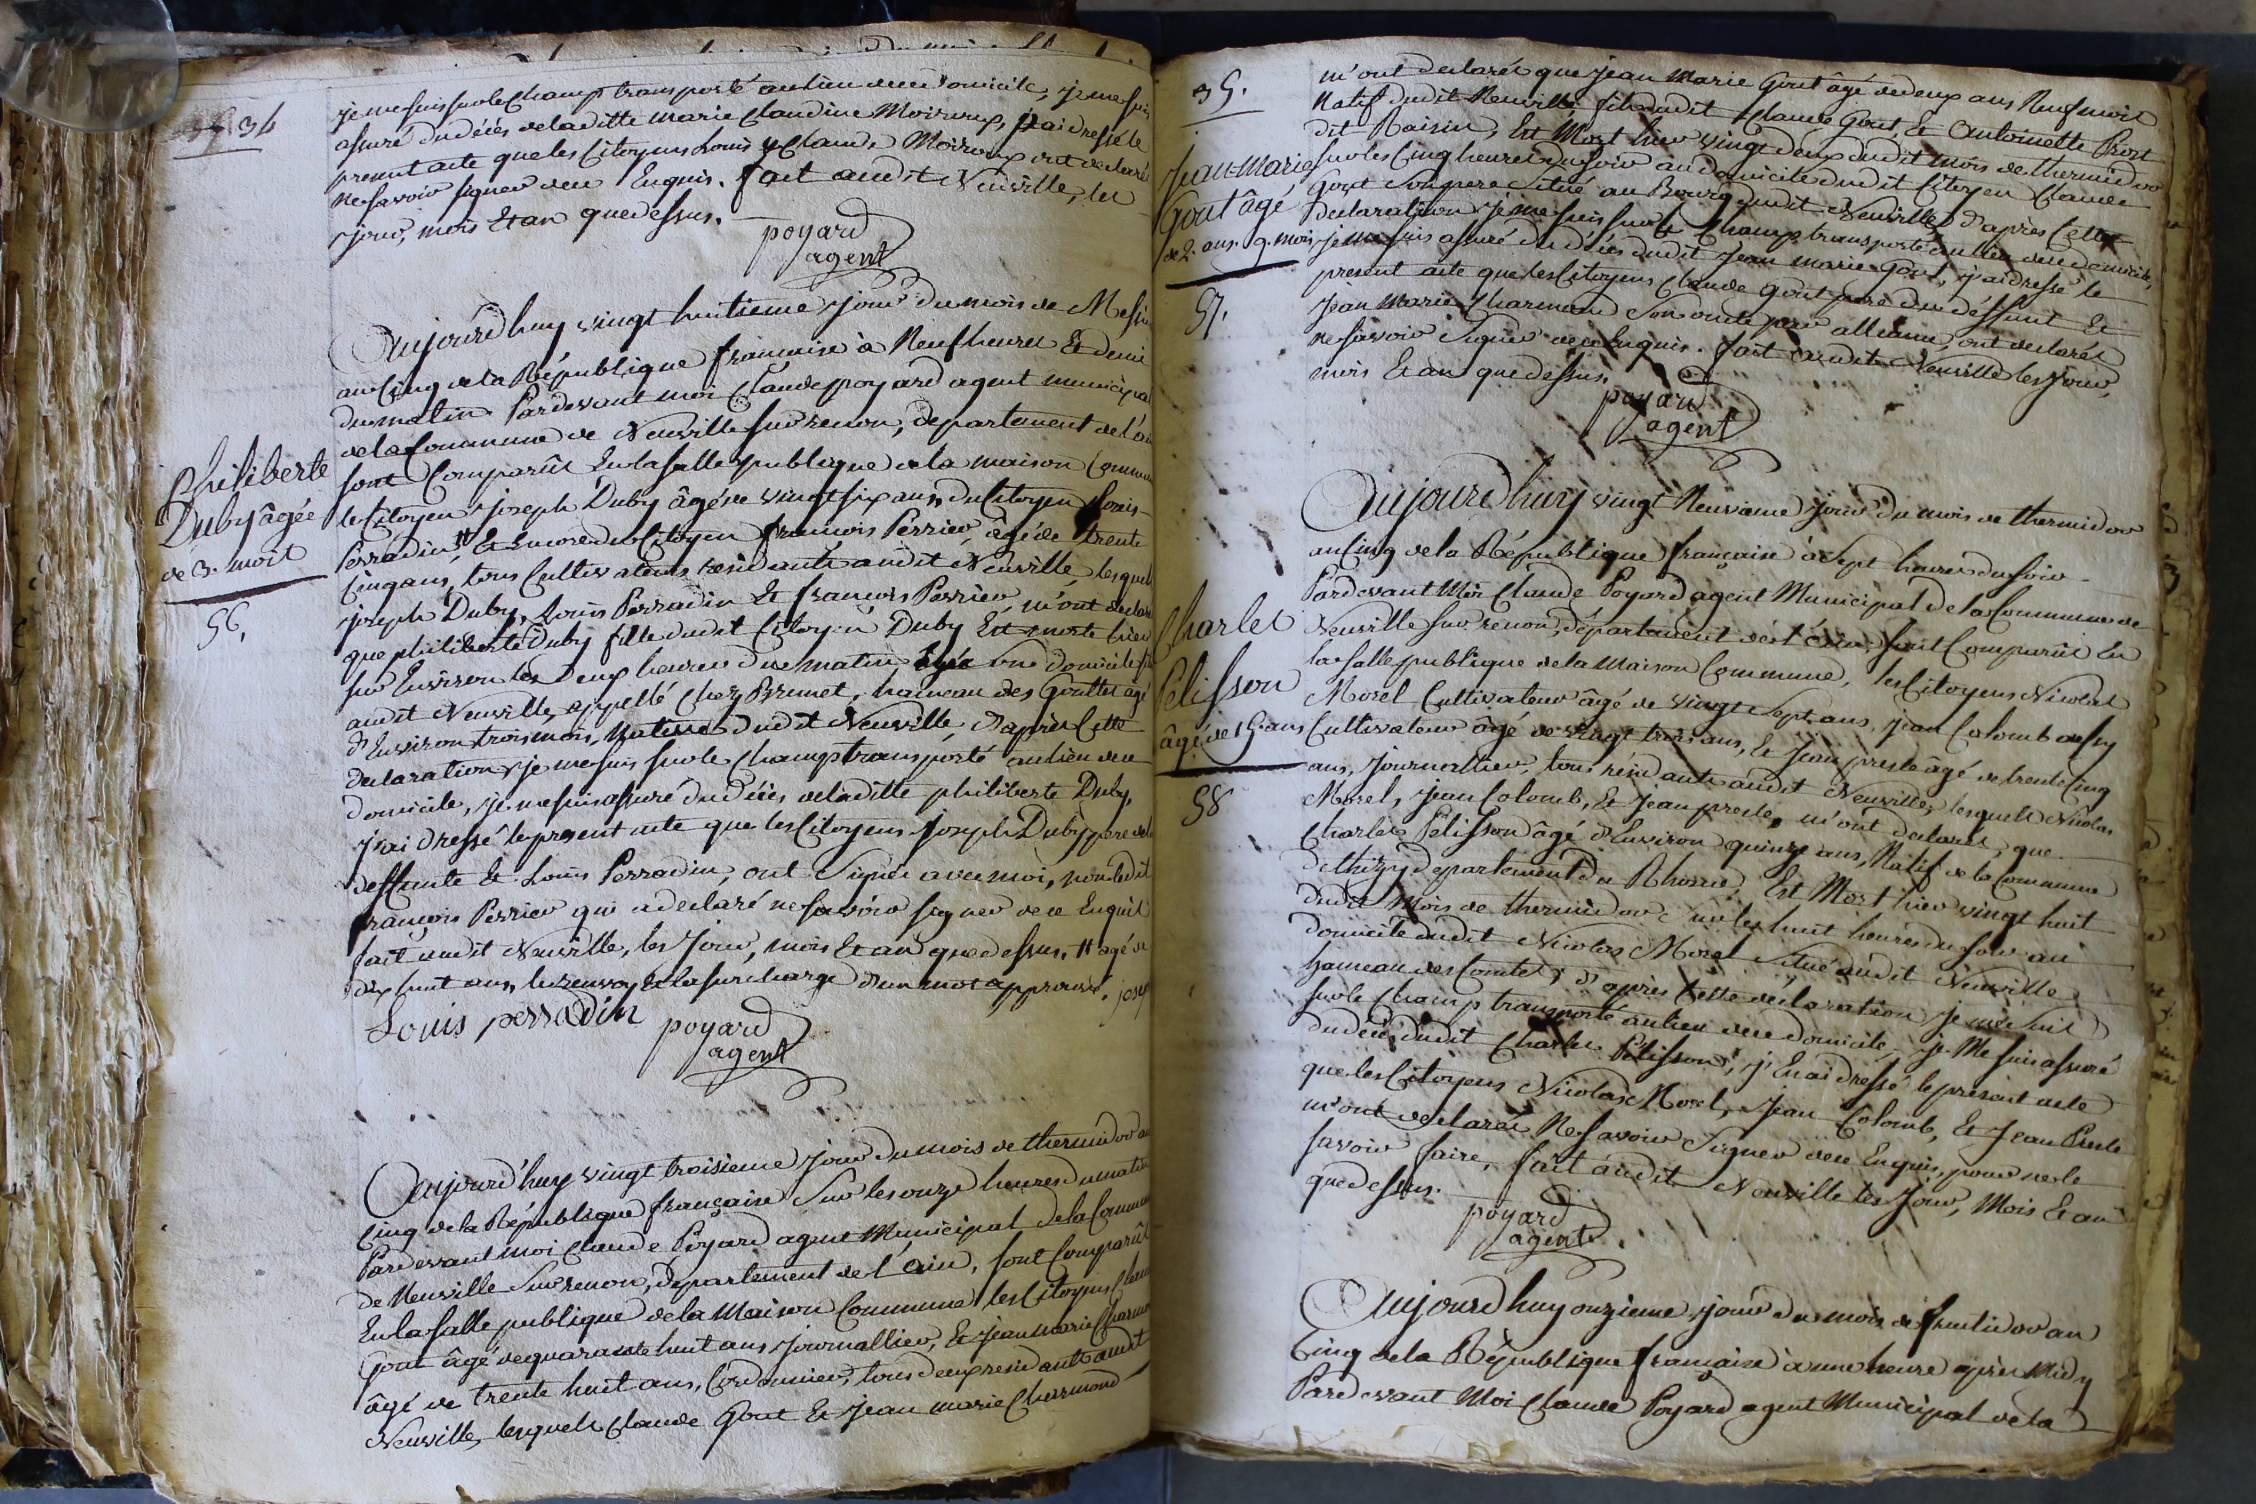 34
je me suis sur le Champ transporté au lieu de ce Domicile, je me suis
assuré du décès de laditte marie Claudine Moiroux, j'ai dressé le
present acte que les Citoyens Louis & Claude Moiroux ont declaré
ne savoir signer de ce Enquis. fait audit Neuville, les
jour, mois Et an que dessus.
poyard
agent
Aujourd'huy vingt huitieme jour du mois de Messi
an Cinq de la République française à Neuf heures Et demi
du matin Pardevant moi Claude poyard agent municipal
de la Commune de Neuville sur renon, departement de l'ain
sont Comparût En la salle publique de la maison Commune
Philiberte
Duby âgée
de 3. mois
56.
le Citoyen joseph Duby âgé de vingt six ans, du Citoyen Louis
Perradin # Et Encore du Citoyen françois Perrier, âgé de trente
Cinq ans, tous Cultivateurs residants audit Neuville, lesquels
joseph Duby, Louis Perradin Et françois Perrier, m'ont declaré
que philiberte Duby fille dudit Citoyen Duby Est morte hier
sur Environ les Deux heures du matin, domicile
audit Neuville, appellé Chez Brunet, hameau des Gouttes âgé
d'Environ trois mois, Native dudit Neuville, D'après Cette
declaration je me suis sur le Champ transporté au lieu de ce
domicile, je me suis assuré du décès de laditte philiberte Duby,
j'ai dressé le present acte que les Citoyens joseph Duby pere de la
deffunte Et Louis Perradin, ont Signés avec moi, non ledit
françois Perrier qui a declaré ne savoir signer de ce Enquis
fait audit Neuville, les Jour, mois Et an que dessus. # agé de
dix huit ans, le renvoy Et la surcharge d'un mot approuvé. jose
Louis perradin poyard
agent
Aujourd'huy vingt troisieme jour du mois de thermidor an
Cinq de la République française Sur les onze heures du matin
Pardevant moi Claude Poyard agent Municipal de la Commune
de Neuville Sur renon, departement de l'ain, sont Comparût
En la salle publique de la Maison Commune les Citoyens Claude
Gout âgé de quarante huit ans journallier, Et jean marie Charmo
âgé de trente huit ans, Cordonnier, tous deux residants audit
Neuville, lesquels Claude Gout Et jean marie Charmond
35.
m'ont declarés que jean Marie Gout âgé de deux ans Neuf mois
Natif dudit Neuville fils dudit Claude Gout, Et Antoinette Prost
dit Raisin, Est Mort hier vingt deux dudit mois de thermidor
Jean-Marie
Gout âgé
de 2. ans. 9. mois
57.
sur les Cinq heures du soir au domicile dudit Citoyen Claude
Gout Son pere Situé au Bourg dudit Neuville, D'après Cette
declaration je me suis sur le Champ transporté au lieu de ce domicile,
je me suis assuré du décès dudit Jean marie Gout, j'ai dressé le
present acte que les Citoyens Claude Gout pere du deffunt Et
jean Marie Charmond Son oncle par alliance, ont declarés
ne savoir Signer de ce Enquis. fait audit Neuville les jour,
mois Et an que dessus.
poyard
agent
Aujourd'huy vingt Neuvieme jour du mois de thermidor
an Cinq de la République française à Sept heures du soir
Pardevant Moi Claude Poyard agent Municipal de la Commune de
Neuville sur renon, département de l'ain, sont Comparût En
la salle publique de la Maison Commune, les Citoyens Nicolas
Charles
Pelisson
âgé de 15. ans
58
Morel Cultivateur âgé de vingt Sept ans, jean Colomb aussy
Cultivateur âgé de vingt trois ans, Et Jean presle âgé de trente Cinq
ans, journallier, tous residants audit Neuville, lesquels Nicolas
Morel, jean Colomb, Et jean presle, m'ont declarés, que
Charles Pelisson âgé d'Environ quinze ans, Natif de la Commune
de thizy departement du Rhone, Est Mort hier vingt huit
dudit Mois de thermidor Sur les huit heures du soir au
domicile dudit Nicolas Morel Situé audit Neuville
hameau des Comtes, D'après Cette declaration je me suis
sur le Champ transporté au lieu de ce domicile, je Me suis assuré
du décès dudit Charles Pelisson, j'En ai dressé le présent acte
que les Citoyens Nicolas Morel, Jean Colomb, Et Jean Presle
m'ont declarés Ne Savoir Signer de ce Enquis, pour ne le
savoir faire, fait audit Neuville les Jour, Mois Et an
que dessus.
poyard
agent.
Aujourd'huy onzieme jour du mois de fructidor an
Cinq de la République française à une heure après Midy
Pardevant Moi Claude Poyard agent Municipal de la